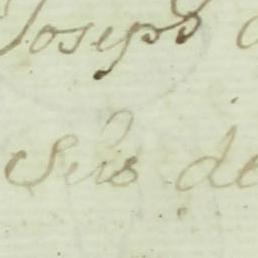 Joseph
Seis de